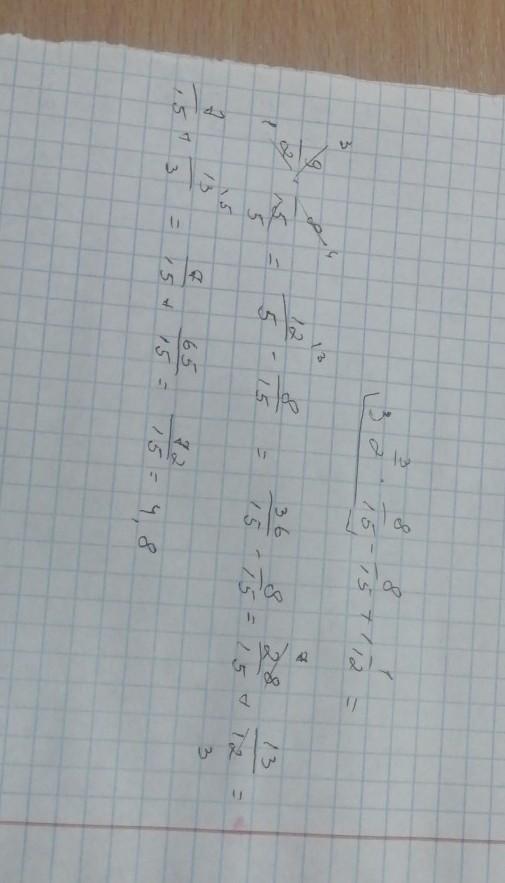 [3 3/2 · 8/15] - 8/15 + 1 1/12 =
9/2 · 8/15 = 12/5 - 8/15 = 36/15 - 8/15 = 28/15 + 13/12 =
7/15 + 13/3 = 7/15 + 65/15 = 72/15 = 4,8